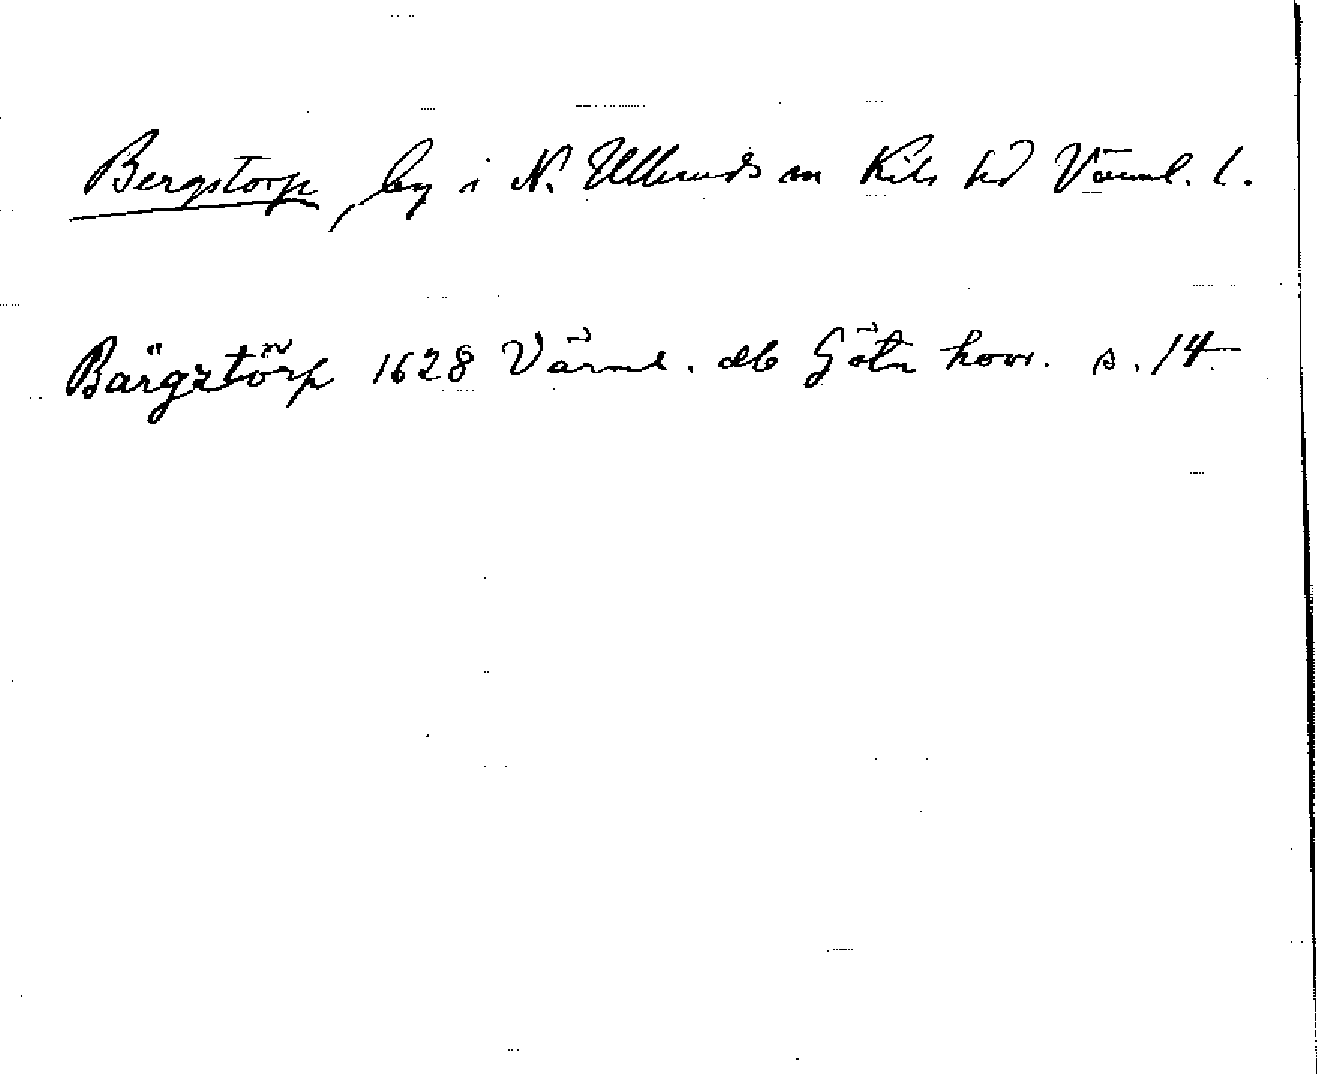 Bergstorp, by i N. Ulleruds sn Kils hd Värml. l.
Bärgztörp 1628 Värml. db Göta hovr. s. 14